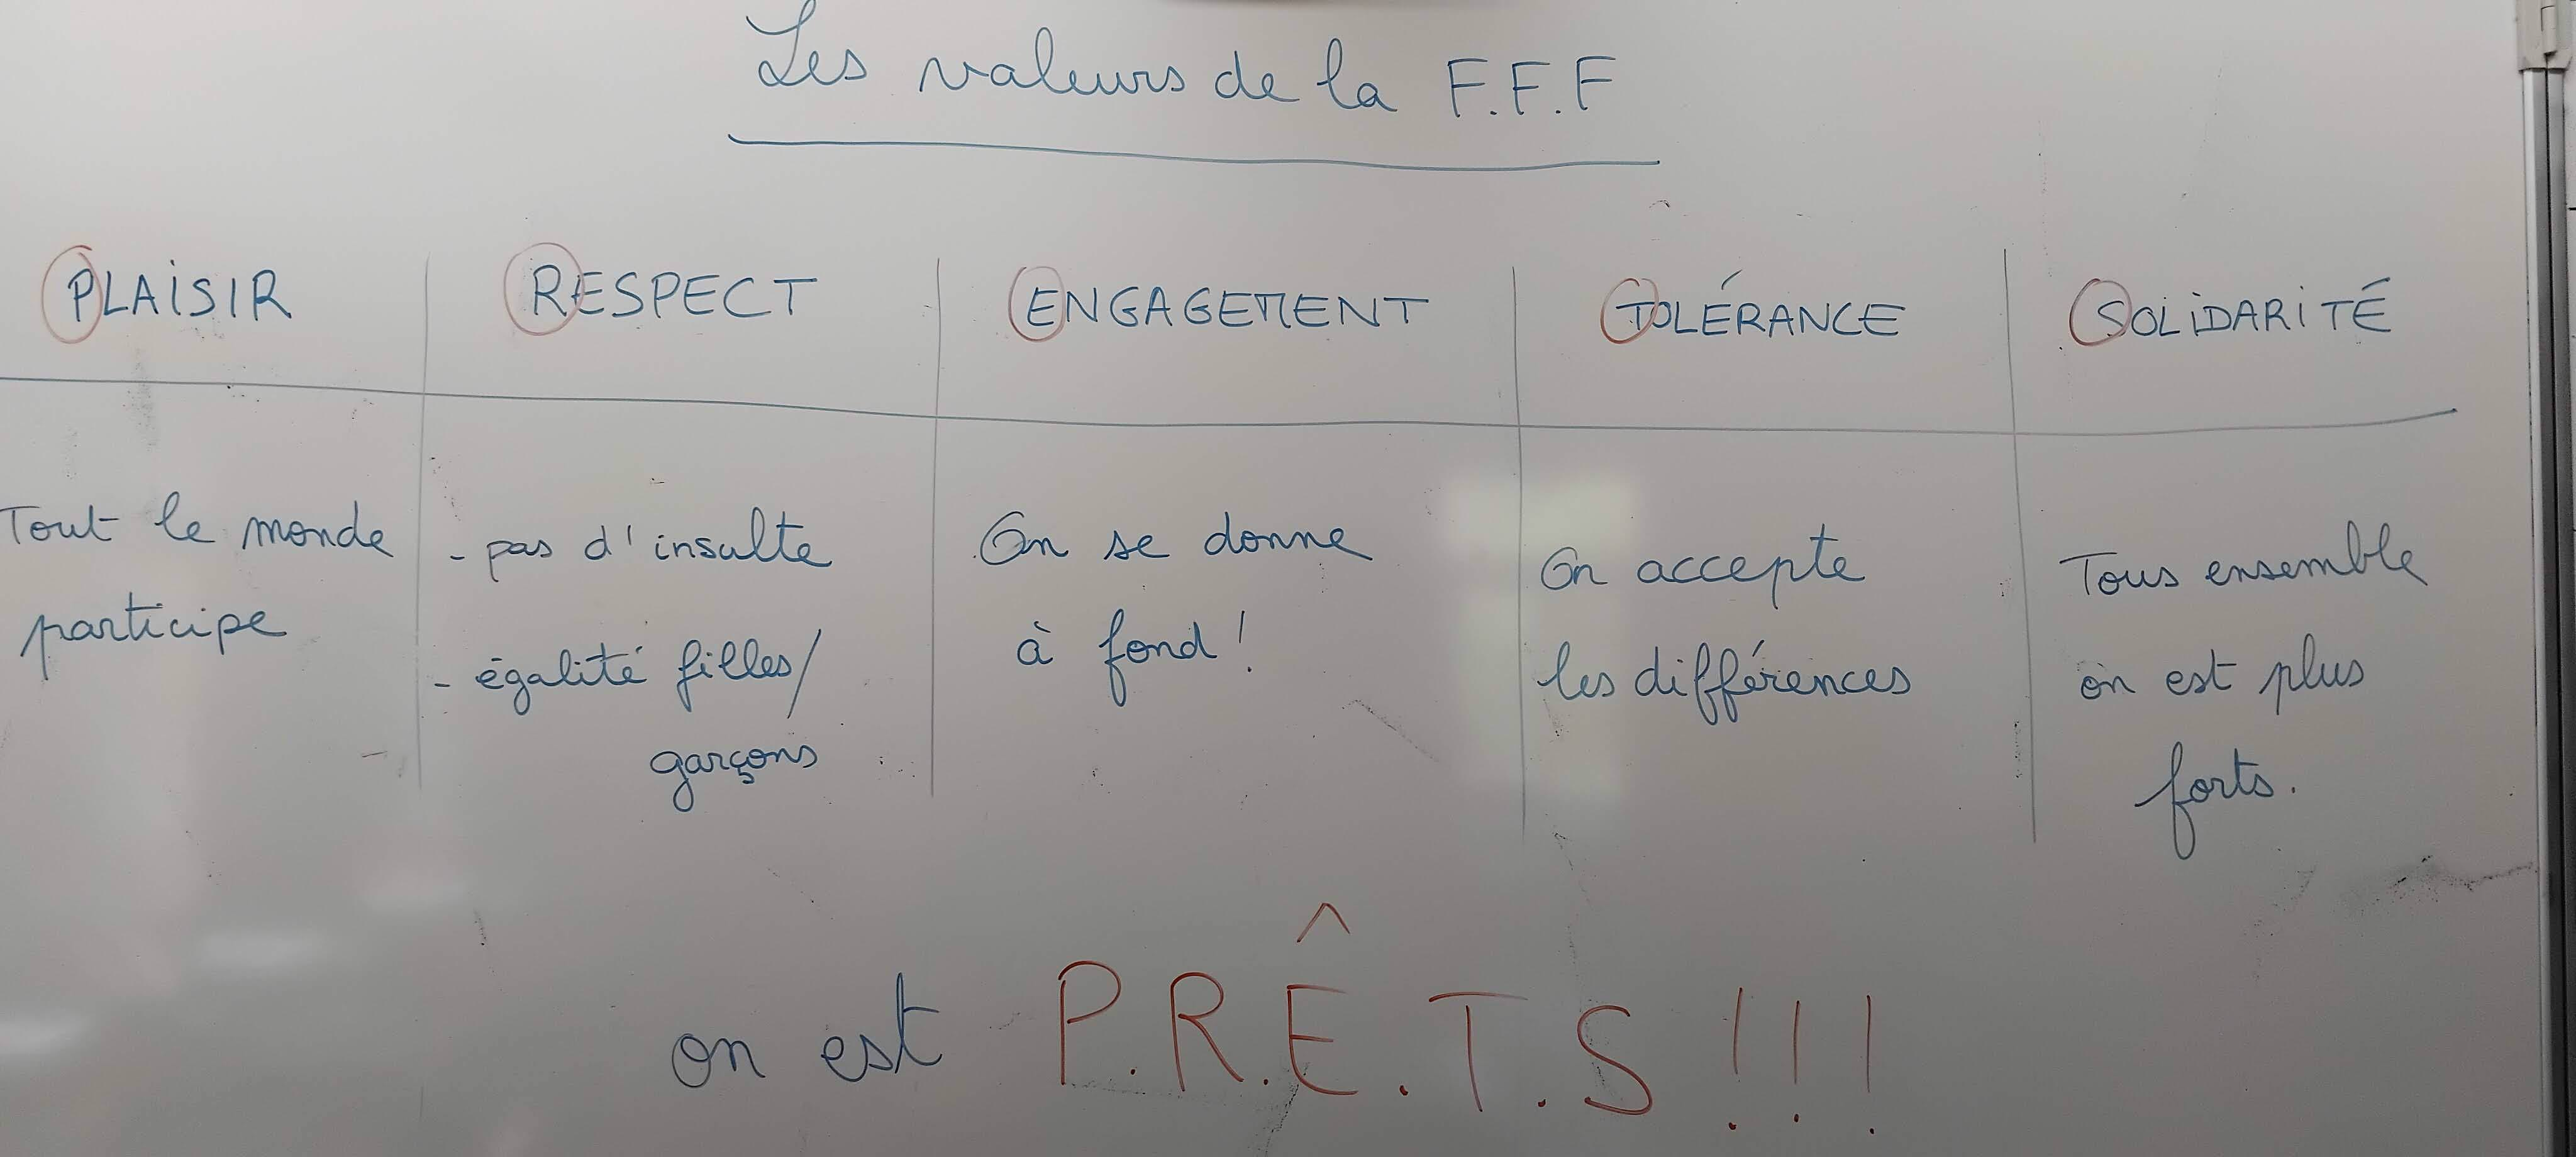 Les valeurs de la F.F.F
PLAISIR
RESPECT
ENGAGEMENT
TOLÉRANCE
SOLIDARITÉ
Tout le monde
participe
- pas d'insulte
- égalité filles/
garçons
On se donne
à fond !
On accepte
les différences
Tous ensemble
on est plus
forts.
on est P.R.Ê.T.S !!!